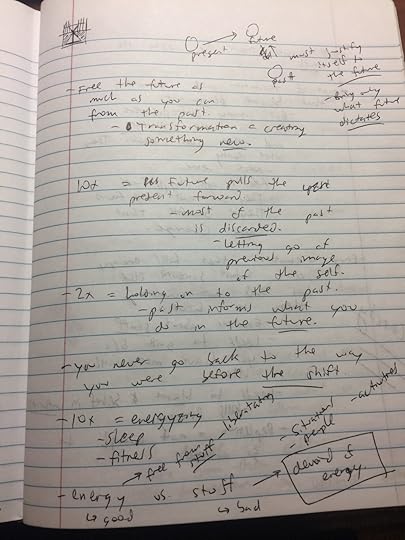 present
future
past must justify
itself to
the future
- Bring only
what future
dictates
- Free the future as
much as you can
from the past.
- Transformation = creating
something new.
10x = Future pulls the
present forward
- most of the past
is discarded.
- letting go of
previous image
of the self.
- 2x = holding on to the past.
- past informs what you
do in the future.
- you never go back to the way
you were before the shift
- 10x = energyzing
- sleep
- fitness
→ free from stuff
liberating
- situations
- people
- activities
- energy vs stuff → devoid of
energy.
↳ good ↳ bad